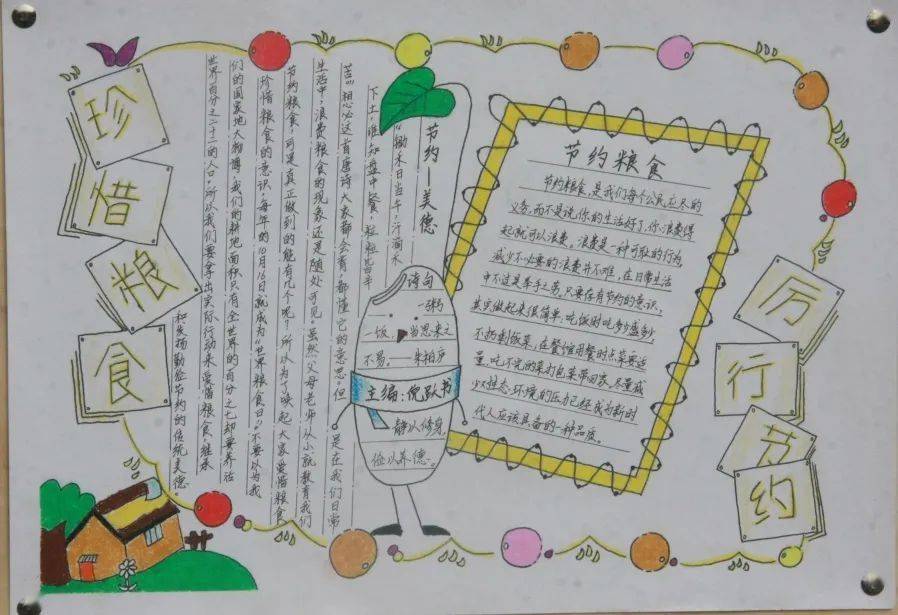 珍惜粮食
厉行节约
节约—美德
“锄禾日当午,汗滴禾
下土,谁知盘中餐,粒粒皆辛
苦”相必这首唐诗大家都会背,都懂它的意思。但是在我们日常
生活中,浪费粮食的现象还是随处可见。虽然父母老师从小就教育我们
节约粮食,可是真正做到的能有几个呢?所以为了唤起大家爱惜粮食
珍惜粮食的意识,每年的10月16日就成为“世界粮食日”不要以为我
们的国家地大物博,我们的耕地面积只有全世界的百分之七却要养活
世界百分之二十二的人口。所以我们要拿出实际行动来爱惜粮食,继承
和发扬勤俭节约的传统美德。
诗句
一粥
一饭,当思来之
不易。——朱柏庐
主编:倪跃书
静以修身,
俭以养德。
节约粮食
节约粮食,是我们每个公民应尽的
义务,而不是说你的生活好了,你浪费得
起就可以浪费。浪费是一种可耻的行为,
减少不必要的浪费并不难,在日常生活
中不过是举手之劳,只要存有节约的意识,
其实做起来很简单:吃饭时吃多少盛多少,
不扔剩饭菜,在餐馆用餐时点菜要适
量,吃不完的菜打包菜带回家,尽量减
少对生态环境的压力已经成为新时
代人应该具备的一种品质。